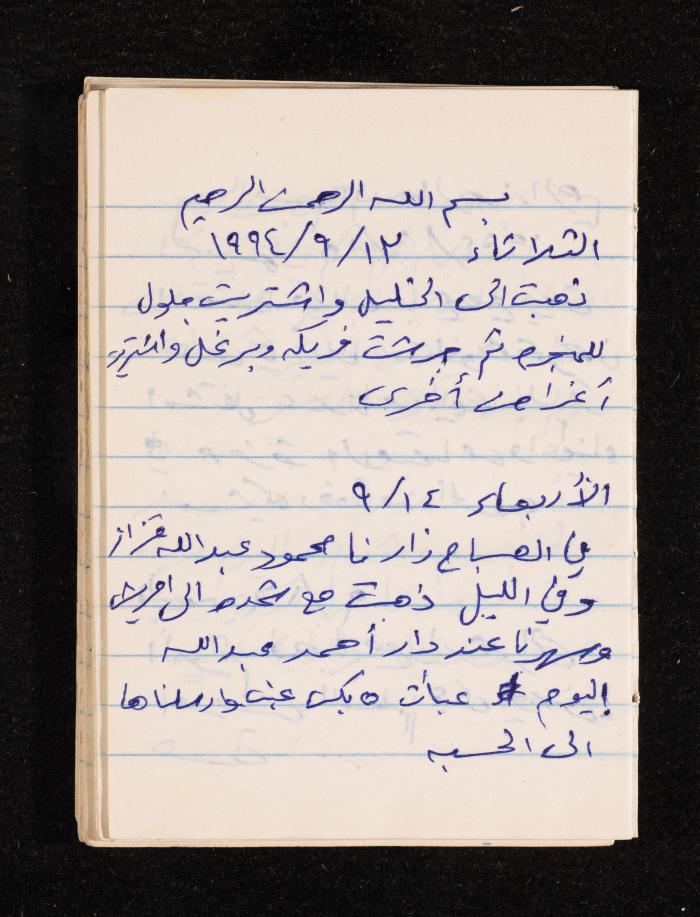 بسم الله الرحمن الرحيم
الثلاثاء ١٩٩٤/٩/١٣
ذهبت الى الخليل واشتريت جلول
ثم جرشت فريكه وبرغل واشتريت
أغراض أخرى
الأربعاء ٩/١٤
في الصباح زارنا محمود عبدالله قزاز
وفي الليل ذهبت مع شحده الى
وسهرنا عند دار أحمد عبدالله
اليوم عبأت ٥ بكس عنب وارسلناها
الى الحسبه